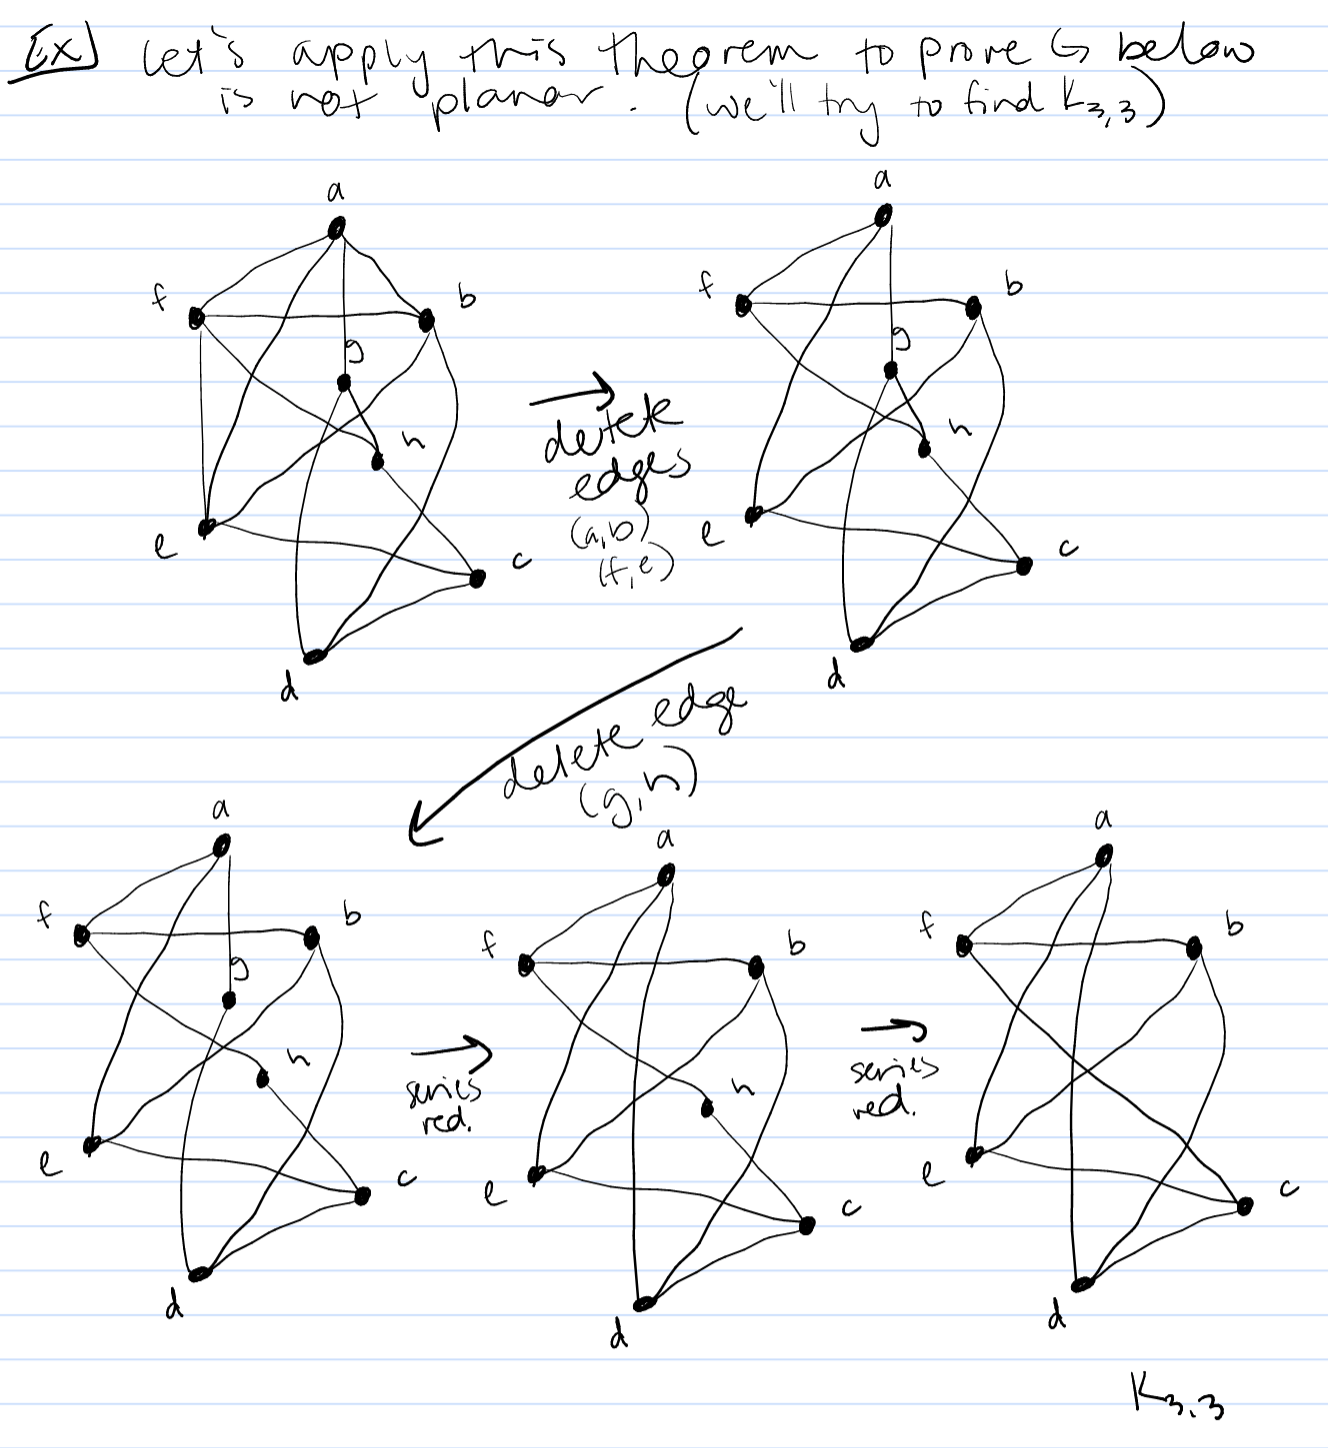 Ex Let's apply this theorem to prove G below
is not planar. (we'll try to find K3,3)
a
f
b
g
h
e
c
d
→
delete
edges
(a,b)
(f,e)
a
f
b
g
h
e
c
d
delete edge
(g,h)
a
f
b
g
h
e
c
d
→
series
red.
a
f
b
h
e
c
d
→
series
red.
a
f
b
e
c
d
K3,3